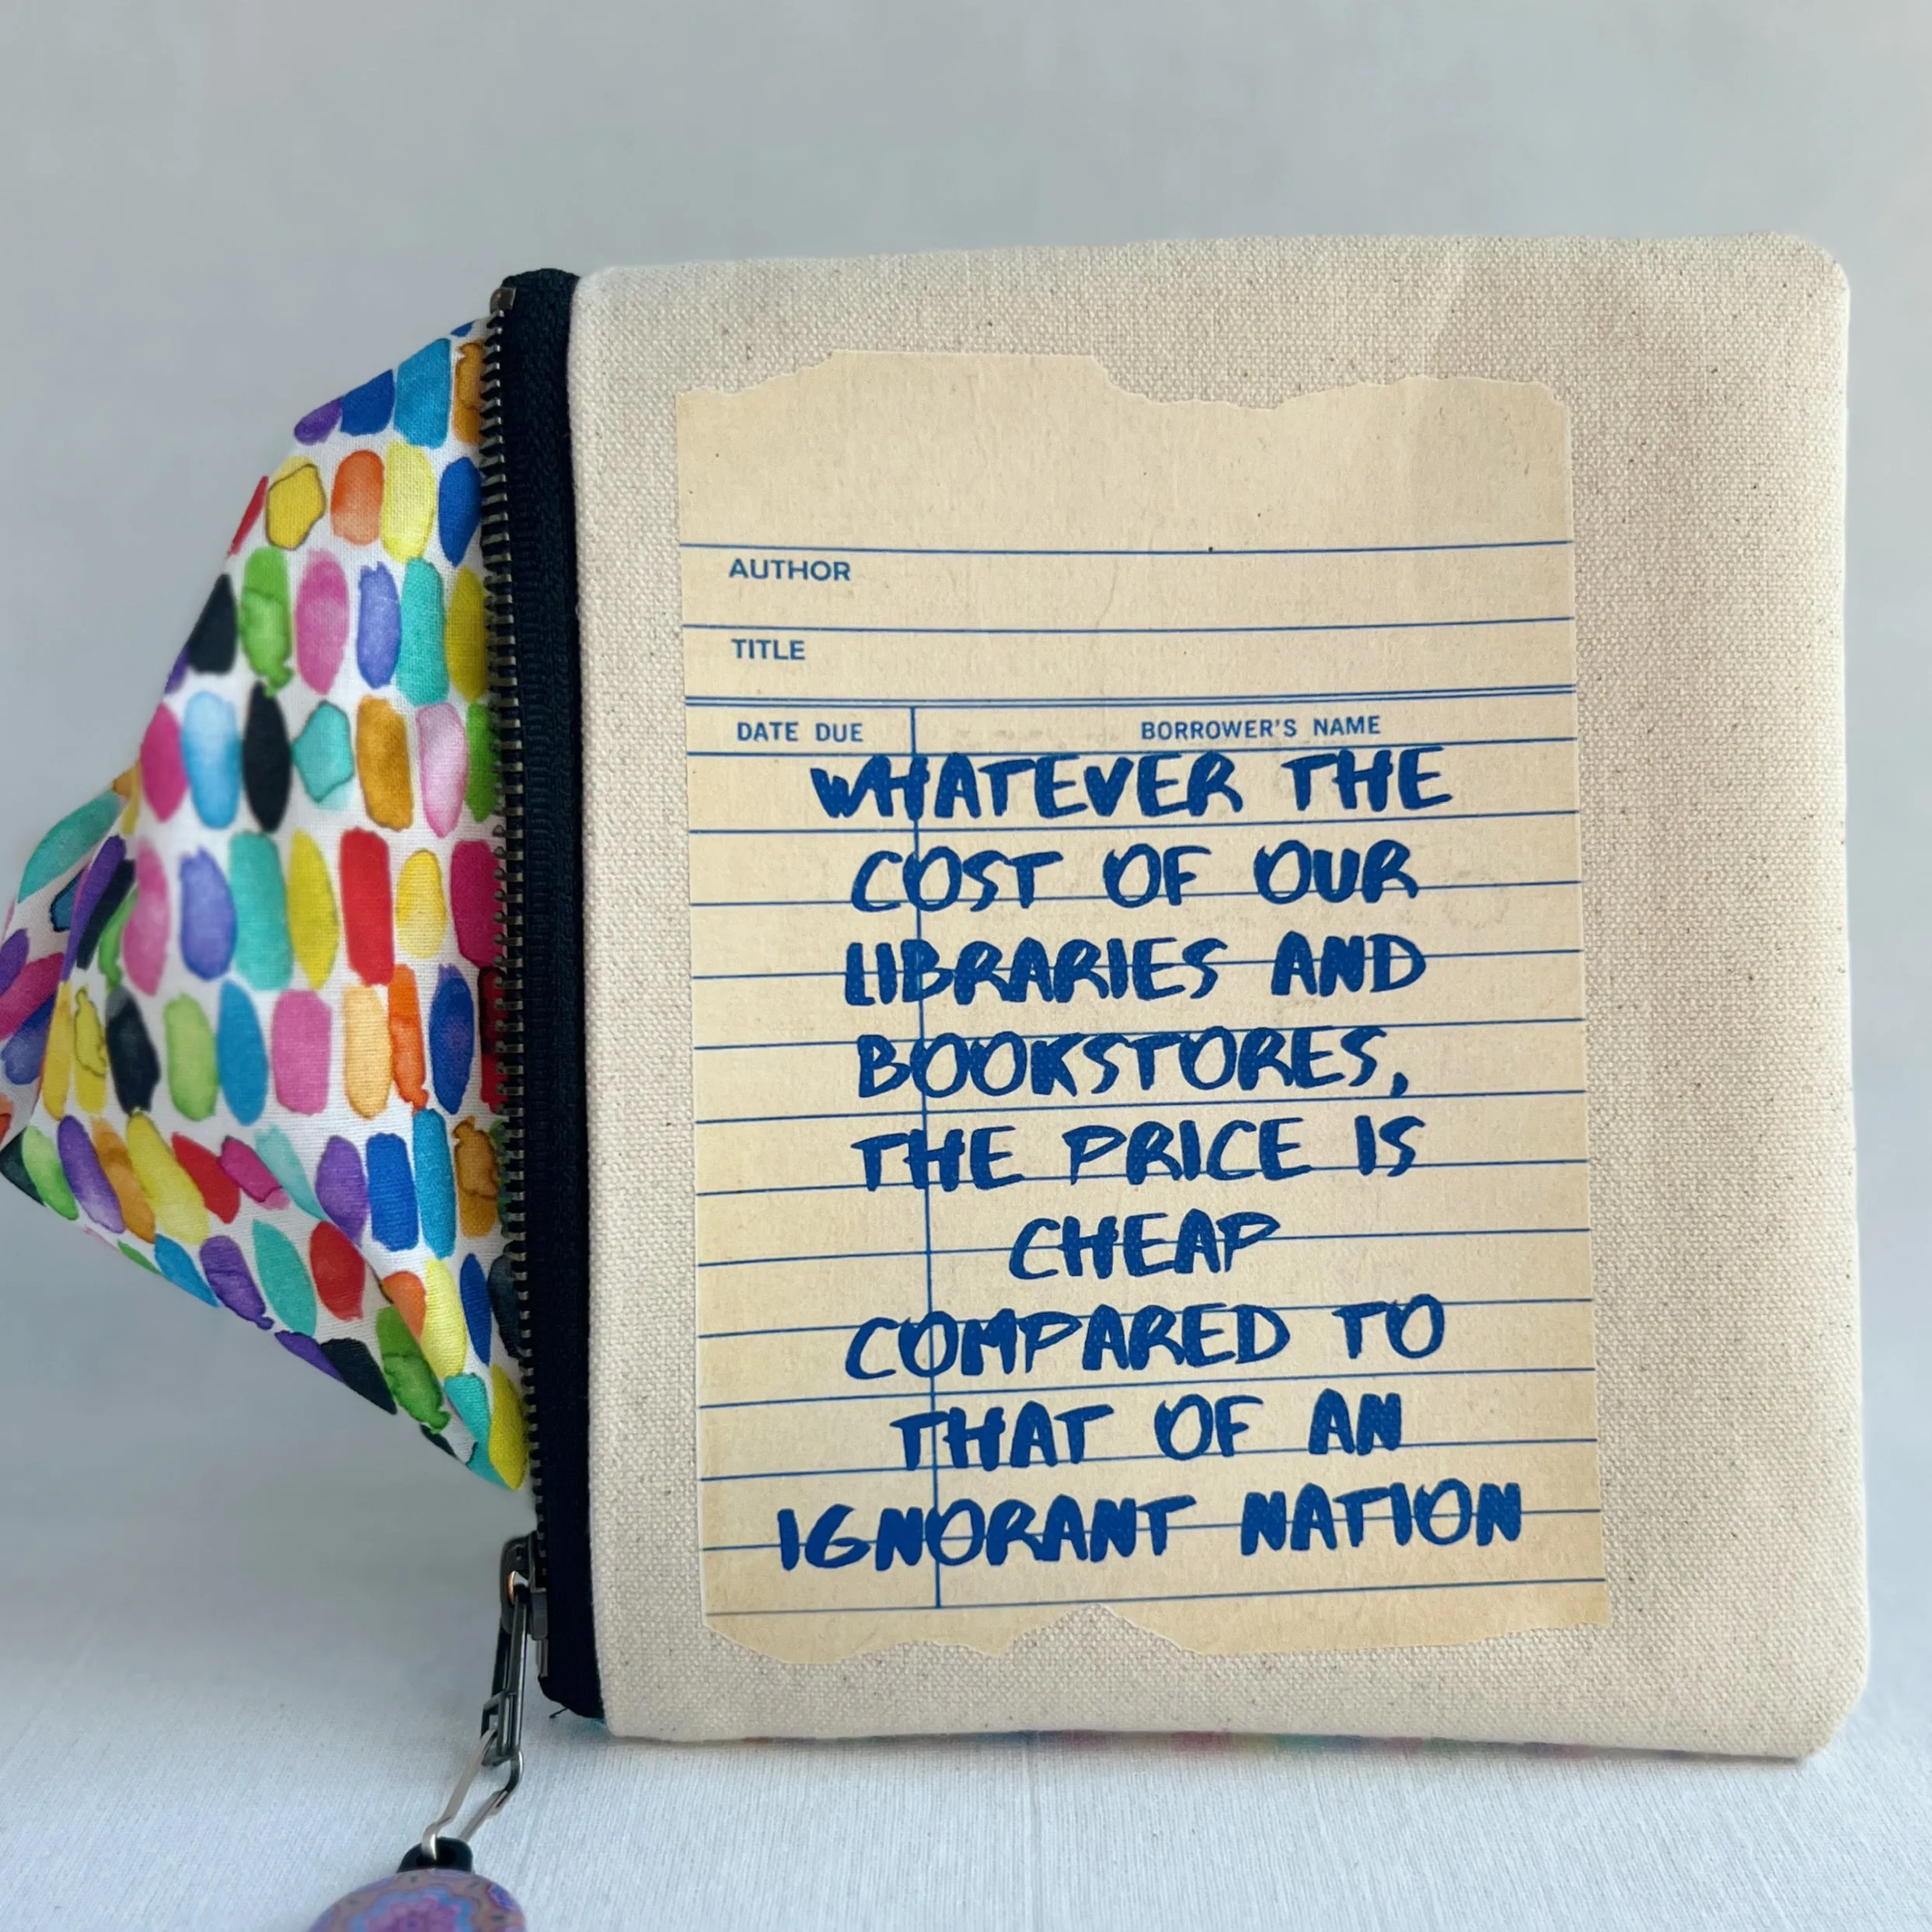 AUTHOR
TITLE
DATE DUE BORROWER'S NAME
WHATEVER THE
COST OF OUR
LIBRARIES AND
BOOKSTORES,
THE PRICE IS
CHEAP
COMPARED TO
THAT OF AN
IGNORANT NATION